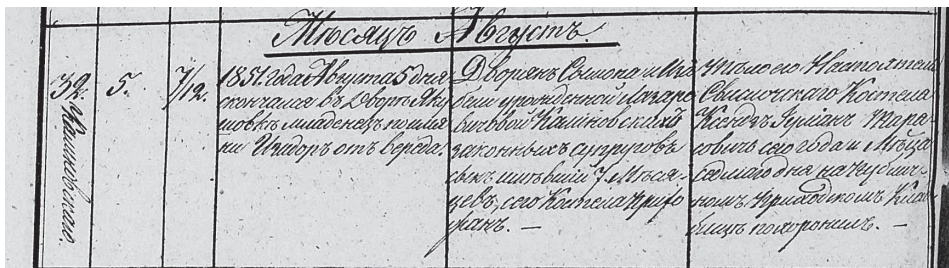 Мѣсяцъ Августъ.
32.
Калиновскаго.
5.
7/12.
1851. года Августа 5 дня
скончался въ Дворѣ Яку
ковкѣ младенецъ по имя
ни Изидоръ отъ вереда.
Дворянъ Сымона и Иза
бели урожденной Лазаро
вичовой Калиновскихъ
законныхъ супруговъ
сынъ жившій 7 мѣся
цевъ, сего Костела прихо
жанъ. —
Тѣло его Настоятель
Свислочскаго Костела
Ксендзъ Іуліанъ
совичъ сего года и Мѣсяца
седмого дня на
номъ приходскомъ Клад
бищѣ похоронилъ. —